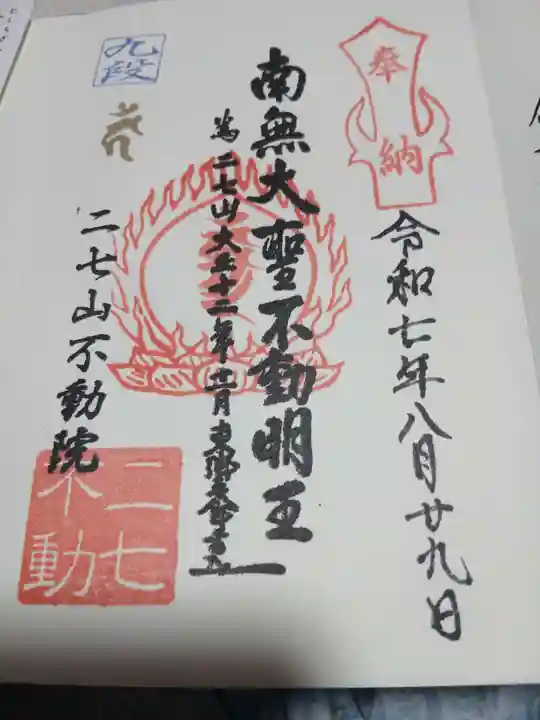 奉納
令和七年八月廿九日
南無大聖不動明王
為二七山大正十二年十一月
二七山不動院
九段
二七不動